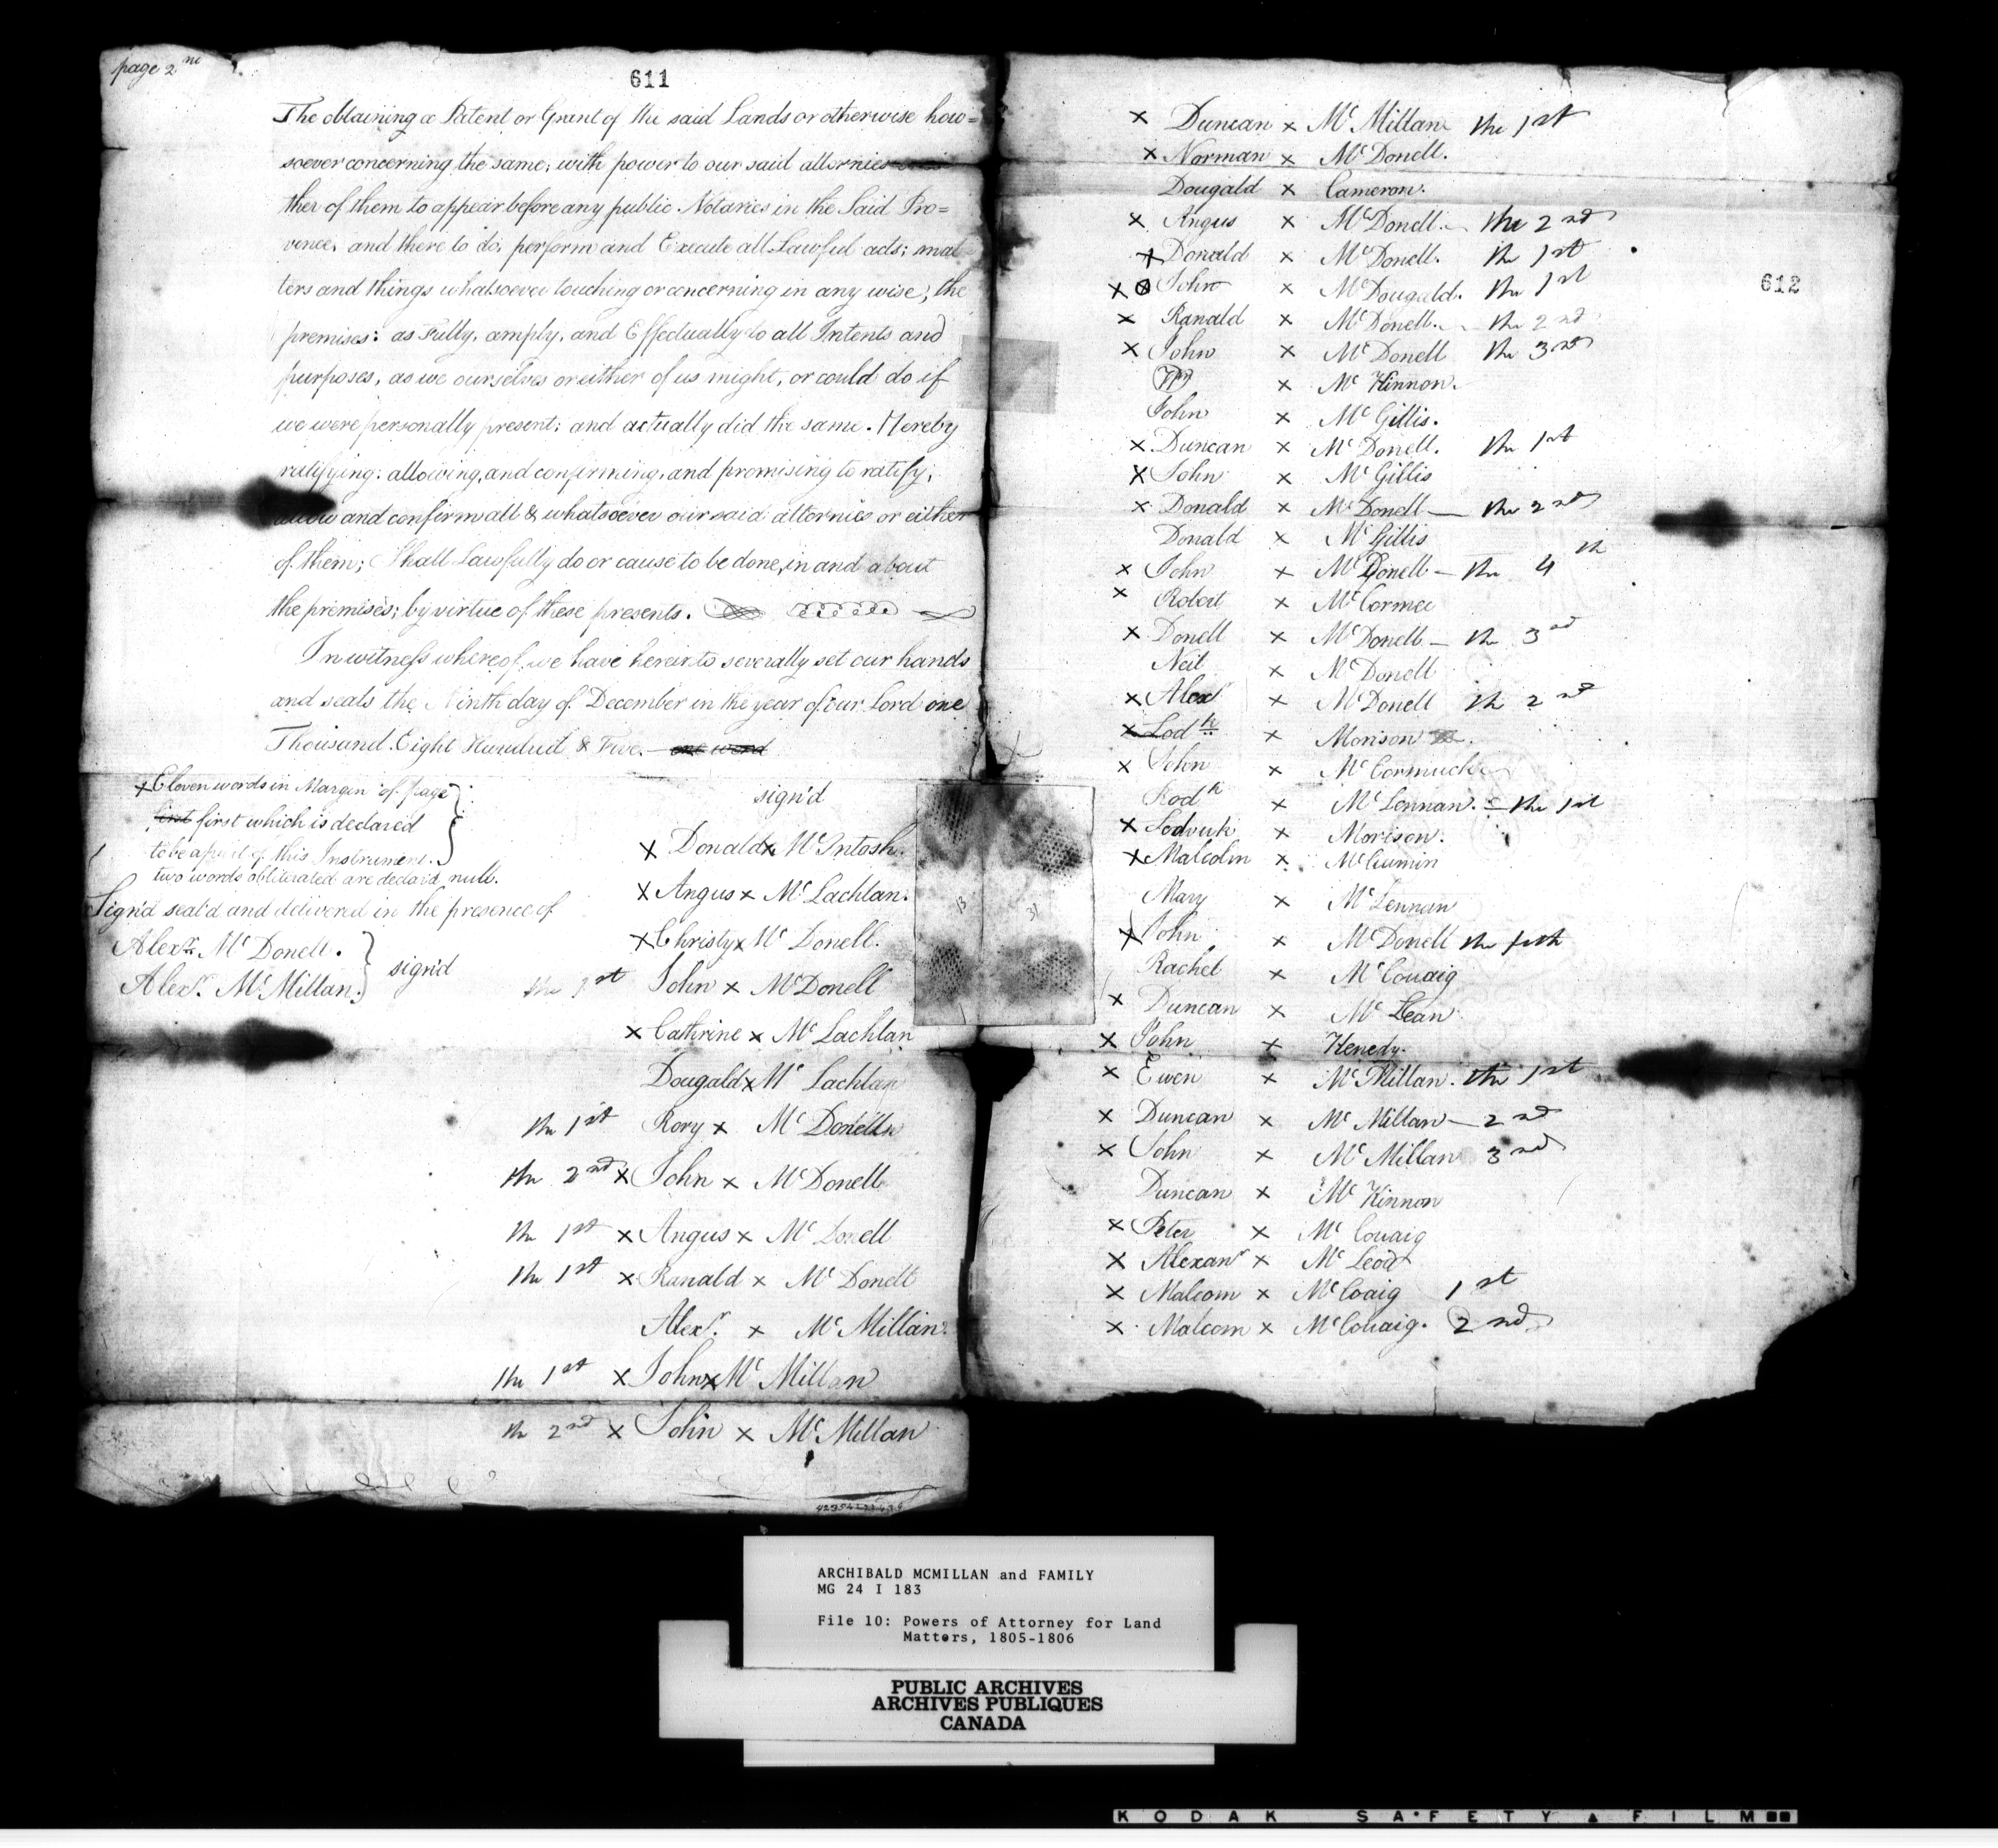 page 2nd
611
The obtaining a Patent or Grant of the said Lands or otherwise how=
soever concerning the same; with power to our said attornies
ther of them to appear before any public Notaries in the Said Pro=
vence, and there to do, perform and Execute all Lawful acts; mat
ters and things whatsoever touching or concerning in any wise, the
premises: as Fully, amply, and Effectually to all Intents and
purposes, as we ourselves or either of us might, or could do if
we were personally present; and actually did the same. Hereby
ratifying: allowing, and confirming, and promising to ratify;
allow and confirm all & whatsoever our said attornies or either
of them; Shall Lawfully do or cause to be done, in and about
the premises; by virtue of these presents.
In witness whereof; we have hereinto severally set our hands
and seals the Ninth day of December in the year of our Lord one
Thousand Eight Hundred & Five. one word
x Eleven words in Margin of page
first which is declared
to be a part of this Instrument.
two words obliterated are declar'd null.
Sign'd seal'd and delivered in the presence of
Alexr. McDonell.
Alexr. McMillan.
sign'd
sign'd
x Donald x McIntosh.
x Angus x McLachlan.
x Christy x McDonell.
the 1st John x McDonell
x Cathrine x McLachlan
Dougald x McLachlan
the 1st Rory x McDonell
the 2nd x John x McDonell
the 1st x Angus x McDonell
the 1st x Ranald x McDonell
Alexr. x McMillan.
the 1st x John x McMillan
the 2nd x John x McMillan
x Duncan x McMillan the 1st
x Norman x McDonell.
Dougald x Cameron.
x Angus x McDonell. the 2nd
x Donald x McDonell. the 1st
x John x McDougald. the 1st
612
x Ranald x McDonell. the 2nd
x John x McDonell the 3rd
x McKinnon.
John x McGillis.
x Duncan x McDonell. the 1st
x John x McGillis
x Donald x McDonell — the 2nd
Donald x McGillis
x John x McDonell — the 4th
x Robert x McCormec
x Donell x McDonell — the 3rd
Neil x McDonell
x Alexr x McDonell the 2nd
x Lodk x Morison
x John x McCormuck
Rodk x McLennan. — the 1st
x Lodvick x Morison.
x Malcolm x McCumin
Mary x McLennan
x John x McDonell the
Rachel x McCouaig
x Duncan x McLean
x John x Kenedy.
x Ewen x McMillan. the 1st
x Duncan x McMillan — 2nd
x John x McMillan 3rd
Duncan x McKinnon
x Peter x McCouaig
x Alexanr x McLeod
x Malcom x McCoaig 1st
x Malcom x McCouaig. 2nd
13
31
ARCHIBALD MCMILLAN and FAMILY
MG 24 I 183
File 10: Powers of Attorney for Land
Matters, 1805-1806
PUBLIC ARCHIVES
ARCHIVES PUBLIQUES
CANADA
KODAK SAFETY FILM